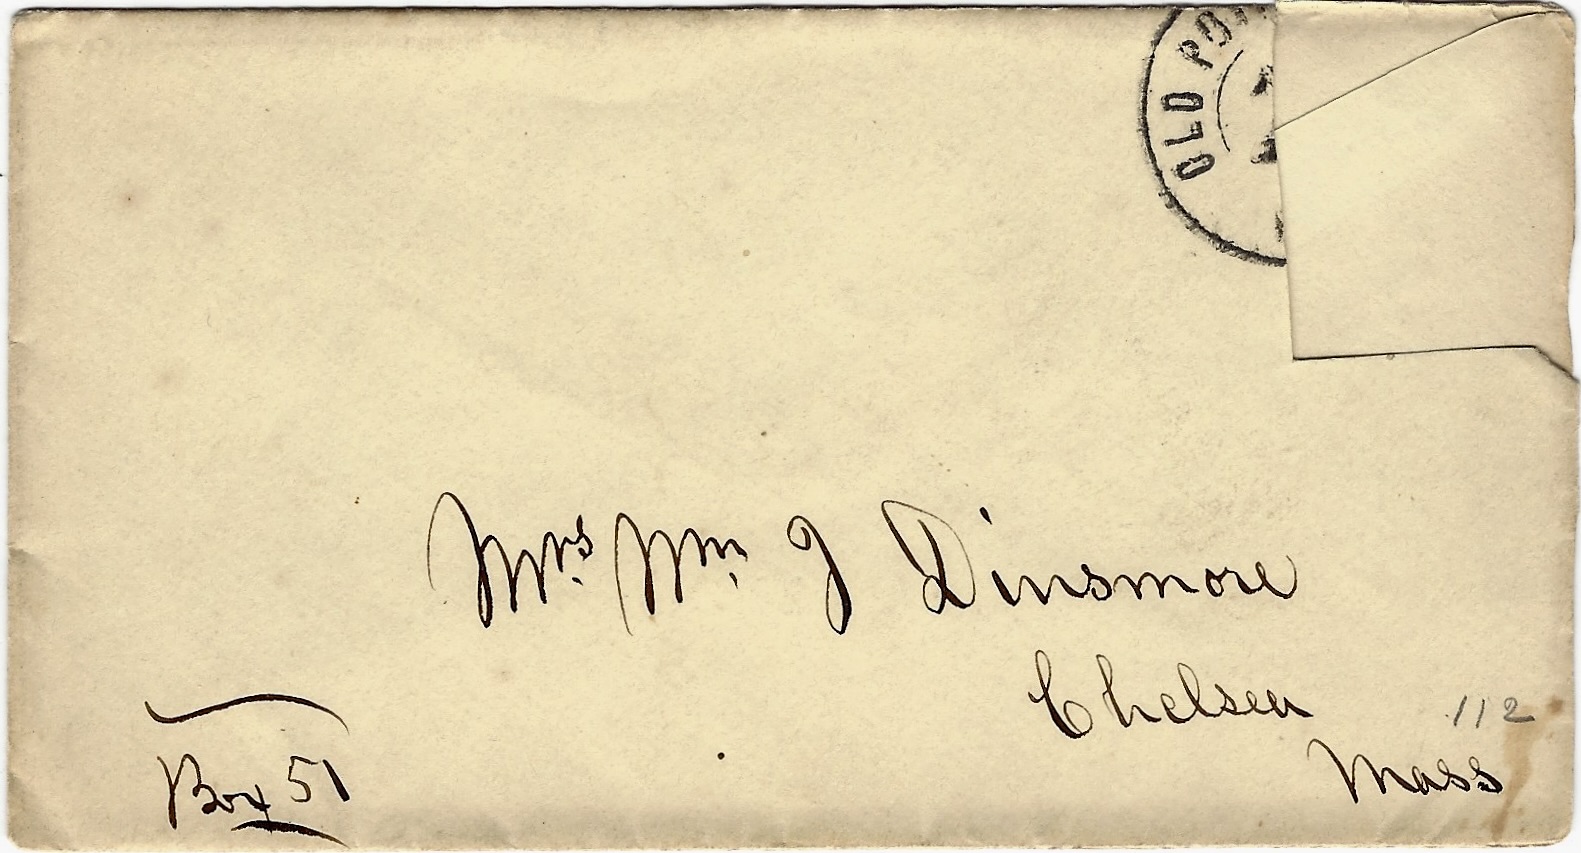 OLD PO
Mrs. Wm. J Dinsmore
Chelsea
112
Mass
Box 51